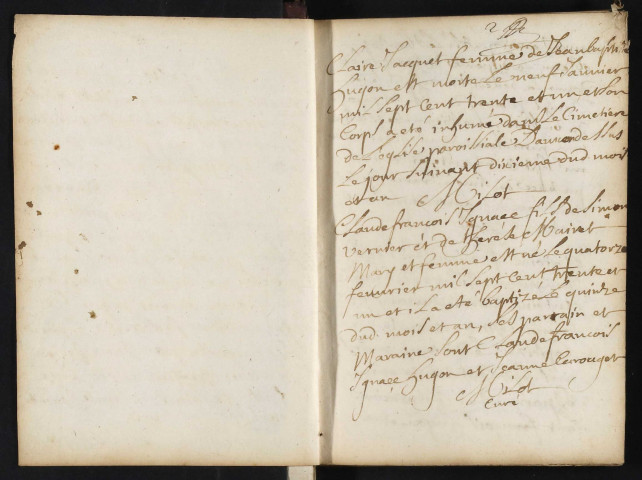 2
Claire Jacquet femme de Jeanbaptiste
hugon est morte le neuf Janvier
mil sept cent trente et un et son
Corps a eté inhumé dans le Cimetiere
de l'eglise paroissiale Dauxon dessus
le jour suivant dixieme dud mois
et an
Claudefrancois Ignace fils de Simon
vernier et de therese Mairet
Mary et femme est né le quatorze
fevvrier mil sept cent trente et
un et il a eté baptizé le quinze
dud mois et an, ses parrain et
Maraine sont Claudefrancois
Ignace hugon et Jeanne
Curé